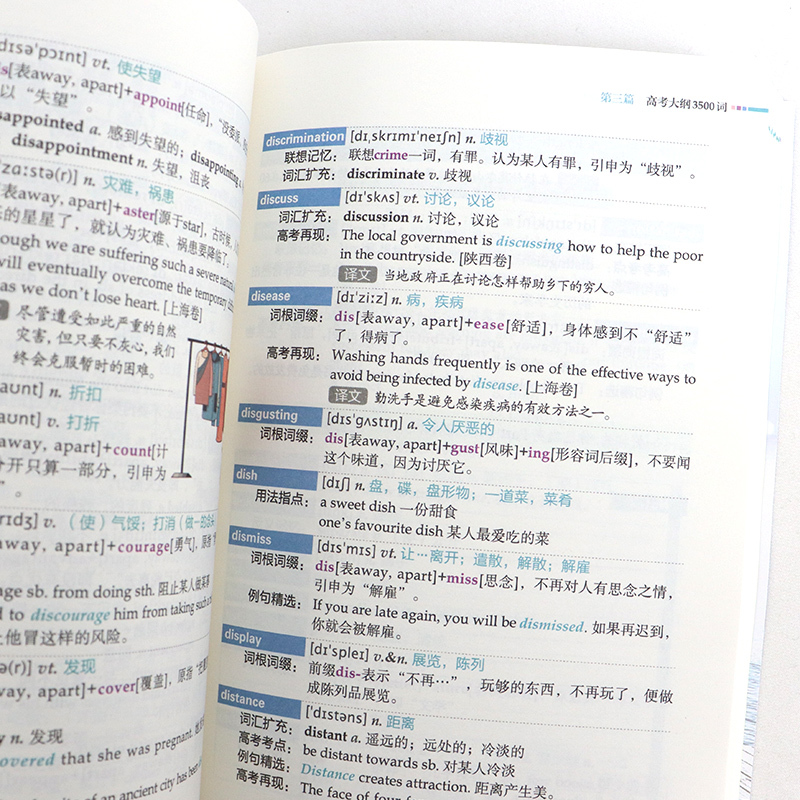 dɪsə'pɔɪnt] vt. 使失望
[表away, apart]+appoint[任命]，“没委
以“失望”。
appointed a. 感到失望的；disappointing a
disappointment n. 失望，沮丧
zɑːstə(r)] n. 灾难，祸患
表away, apart]+aster[源于star]，古时候，
的星星了，就认为灾难、祸患要降临了。
ough we are suffering such a severe natural
will eventually overcome the temporary
as we don't lose heart. [上海卷]
尽管遭受如此严重的自然
灾害，但只要不灰心，我们
终会克服暂时的困难。
aʊnt] n. 折扣
aʊnt] v. 打折
away, apart]+count[计
分开只算一部分，引申为
rɪdʒ] v. （使）气馁；打消（做…的念头
away, apart]+courage[勇气]，原指
age sb. from doing sth. 阻止某人做某事
d to discourage him from taking such a
止他冒这样的风险。
ə(r)] vt. 发现
way, apart]+cover[覆盖]，原指“把覆
y n. 发现
overed that she was pregnant.
of an ancient city has been
第三篇 高考大纲3500词
discrimination [dɪˌskrɪmɪ'neɪʃn] n. 歧视
联想记忆： 联想crime一词，有罪。认为某人有罪，引申为“歧视”。
词汇扩充： discriminate v. 歧视
discuss [dɪ'skʌs] vt. 讨论，议论
词汇扩充： discussion n. 讨论，议论
高考再现： The local government is discussing how to help the poor
in the countryside. [陕西卷]
译文 当地政府正在讨论怎样帮助乡下的穷人。
disease [dɪ'ziːz] n. 病，疾病
词根词缀： dis[表away, apart]+ease[舒适]，身体感到不“舒适”
了，得病了。
高考再现： Washing hands frequently is one of the effective ways to
avoid being infected by disease. [上海卷]
译文 勤洗手是避免感染疾病的有效方法之一。
disgusting [dɪs'ɡʌstɪŋ] a. 令人厌恶的
词根词缀： dis[表away, apart]+gust[风味]+ing[形容词后缀]，不要闻
这个味道，因为讨厌它。
dish [dɪʃ] n. 盘，碟，盘形物；一道菜，菜肴
用法指点： a sweet dish 一份甜食
one's favourite dish 某人最爱吃的菜
dismiss [dɪs'mɪs] vt. 让…离开；遣散，解散；解雇
词根词缀： dis[表away, apart]+miss[思念]，不再对人有思念之情，
引申为“解雇”。
例句精选： If you are late again, you will be dismissed. 如果再迟到，
你就会被解雇。
display [dɪ'spleɪ] v.&n. 展览，陈列
词根词缀： 前缀dis-表示“不再…”，玩够的东西，不再玩了，便做
成陈列品展览。
distance ['dɪstəns] n. 距离
词汇扩充： distant a. 遥远的；远处的；冷淡的
高考考点： be distant towards sb. 对某人冷淡
例句精选： Distance creates attraction. 距离产生美。
高考再现： The face of four